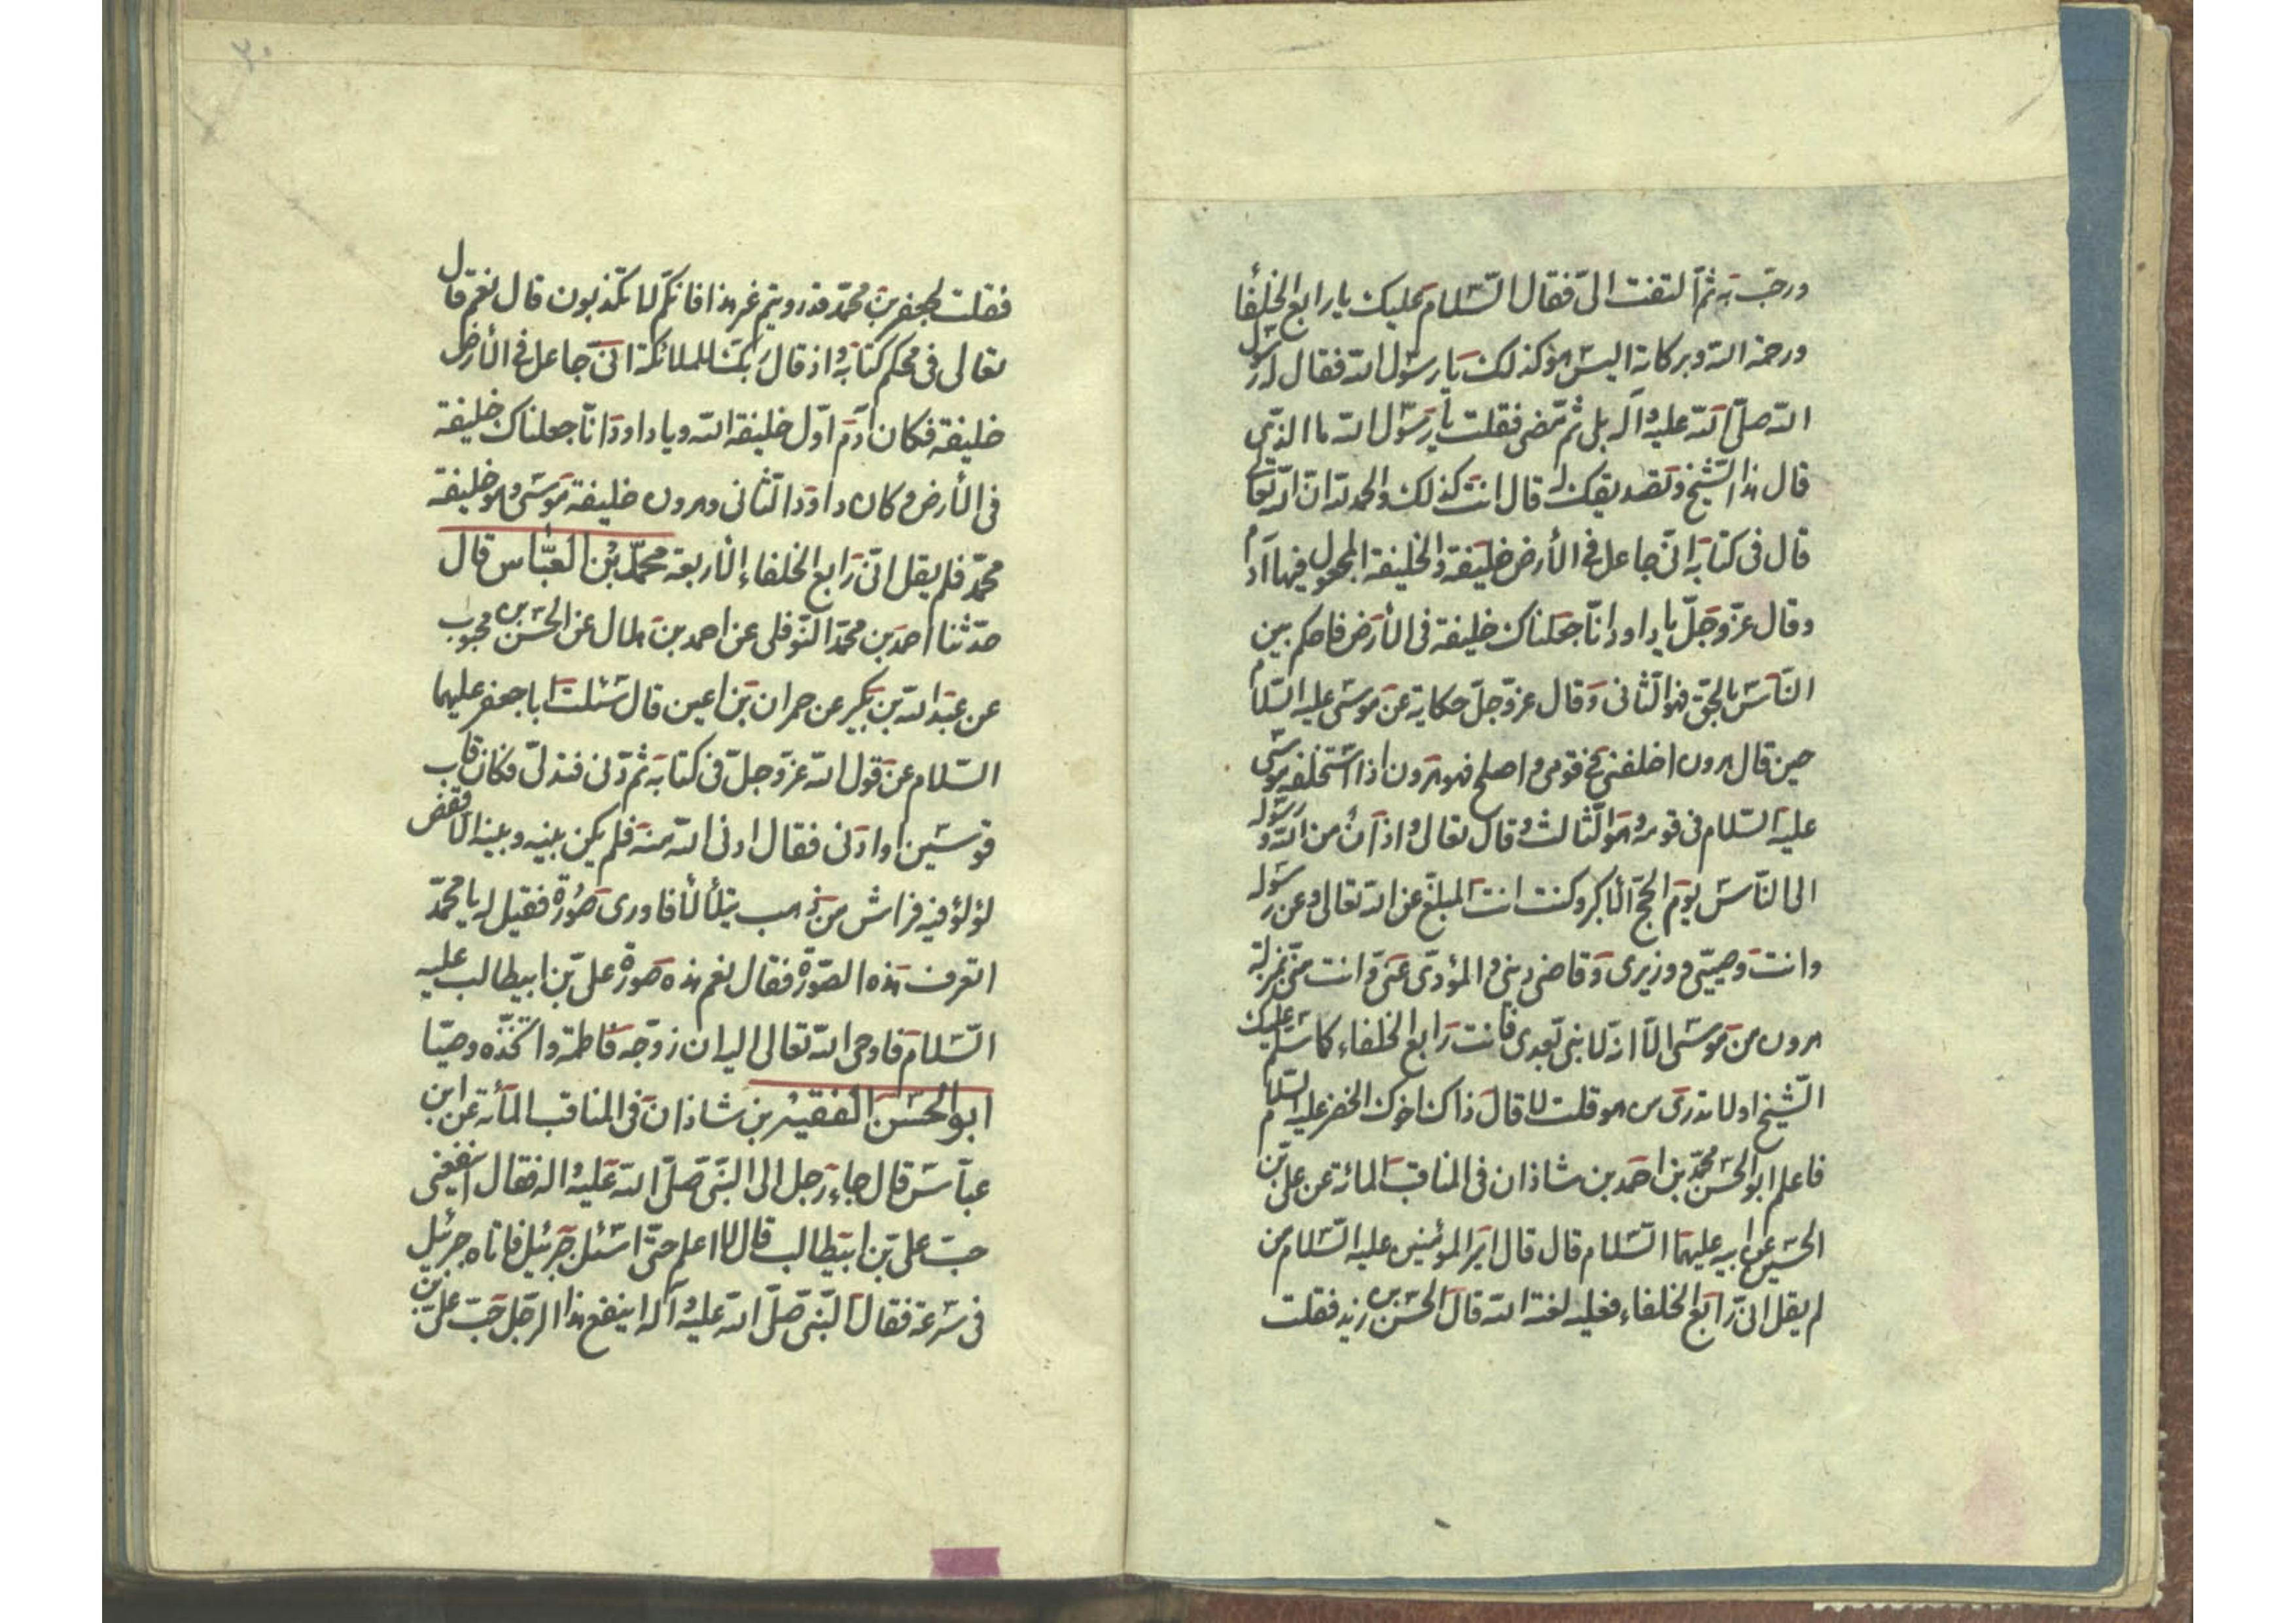 ورحّب به ثمّ التفت الیّ فقال السّلام علیک یا رابع الخلفأ
ورحمة الله وبرکاته الیس هو کذلک یا رسول الله فقال له رسول
الله صلّی الله علیه وآله بل ثمّ مضی فقلت یا رسول الله ما الذّی
قال هذا الشّیخ وتصدیقک له قال انت کذلک والحمد لله انّ الله تعا
قال فی کتابه انّی جاعل فی الأرض خلیفة والخلیفة المجعول فیها آدم
وقال عزّ وجلّ یا داود انّا جعلناک خلیفة فی الأرض فاحکم بین
النّاس بالحقّ فهو الثّانی وقال عزّ وجلّ حکایة عن موسی علیه السّلام
حین قال هرون اخلفنی فی قومی واصلح فهو هرون اذا استخلفه موسی
علیه السّلام فی قومه وهو الثّالث وقال تعالی واذان من الله ورسوله
الی النّاس یوم الحجّ الأکبر وکنت انت المبلّغ عن الله تعالی وعن رسوله
وانت وصیّی ووزیری وقاضی دینی والمؤدّی عنّی وانت منّی بمنزلة
هرون من موسی الّا انّه لا نبی بعدی فانت رابع الخلفاء کما سلّم علیک
الشّیخ اولا تدری من هو قلت لا قال ذاک اخوک الخضر علیه السّلام
فاعلم ابو الحسن محمّد بن احمد بن شاذان فی المناقب المائة عن علیّ بن
الحسین عن ابیه علیهما السّلام قال قال امیر المؤمنین علیه السّلام من
لم یقل انّی رابع الخلفاء فعلیه لعنة الله قال الحسن بن زید فقلت
فقلت لجعفر بن محمّد قد رویتم غیر هذا فانکم لا تکذبون قال نعم قال
تعالی فی محکم کتابه واذ قال ربّک للملائکة انّی جاعل فی الأرض
خلیفة فکان آدم اوّل خلیفة الله ویا داود انّا جعلناک خلیفة
فی الأرض وکان داود الثّانی وهرون خلیفة موسی وهو خلیفة
محمّد فلم یقل انّی رابع الخلفاء الأربعة محمّد بن العبّاس قال
حدّثنا احمد بن محمّد النّوفلی عن احمد بن هلال عن الحسن بن محبوب
عن عبد الله بن بکیر عن حمران بن اعین قال سئلت ابا جعفر علیهما
السّلام عن قول الله عزّ وجلّ فی کتابه ثم دنی فتدلّی فکان قاب
قوسین او ادنی فقال ادنی الله منه فلم یکن بینه وبینه الّا قفص
لؤلؤ فیه فراش من ذهب یتلألأ فاوری صورة فقیل له یا محمّد
اتعرف هذه الصّورة فقال نعم هذه صورة علیّ بن ابیطالب علیه
السّلام فاوحی الله تعالی الیه ان زوّجه فاطمة واتخذّه وصیّا
ابو الحسن الفقیه بن شاذان فی المناقب المأئة عن ابن
عبّاس قال جاء رجل الی النّبی صلّی الله علیه واله فقال اینفعنی
حبّ علیّ بن ابیطالب قال لا اعلم حتّی اسئل جبرئیل فاتاه جبرئیل
فی سرعة فقال النّبی صلّی الله علیه وآله اینفع هذا الرّجل حبّ علیّ بن